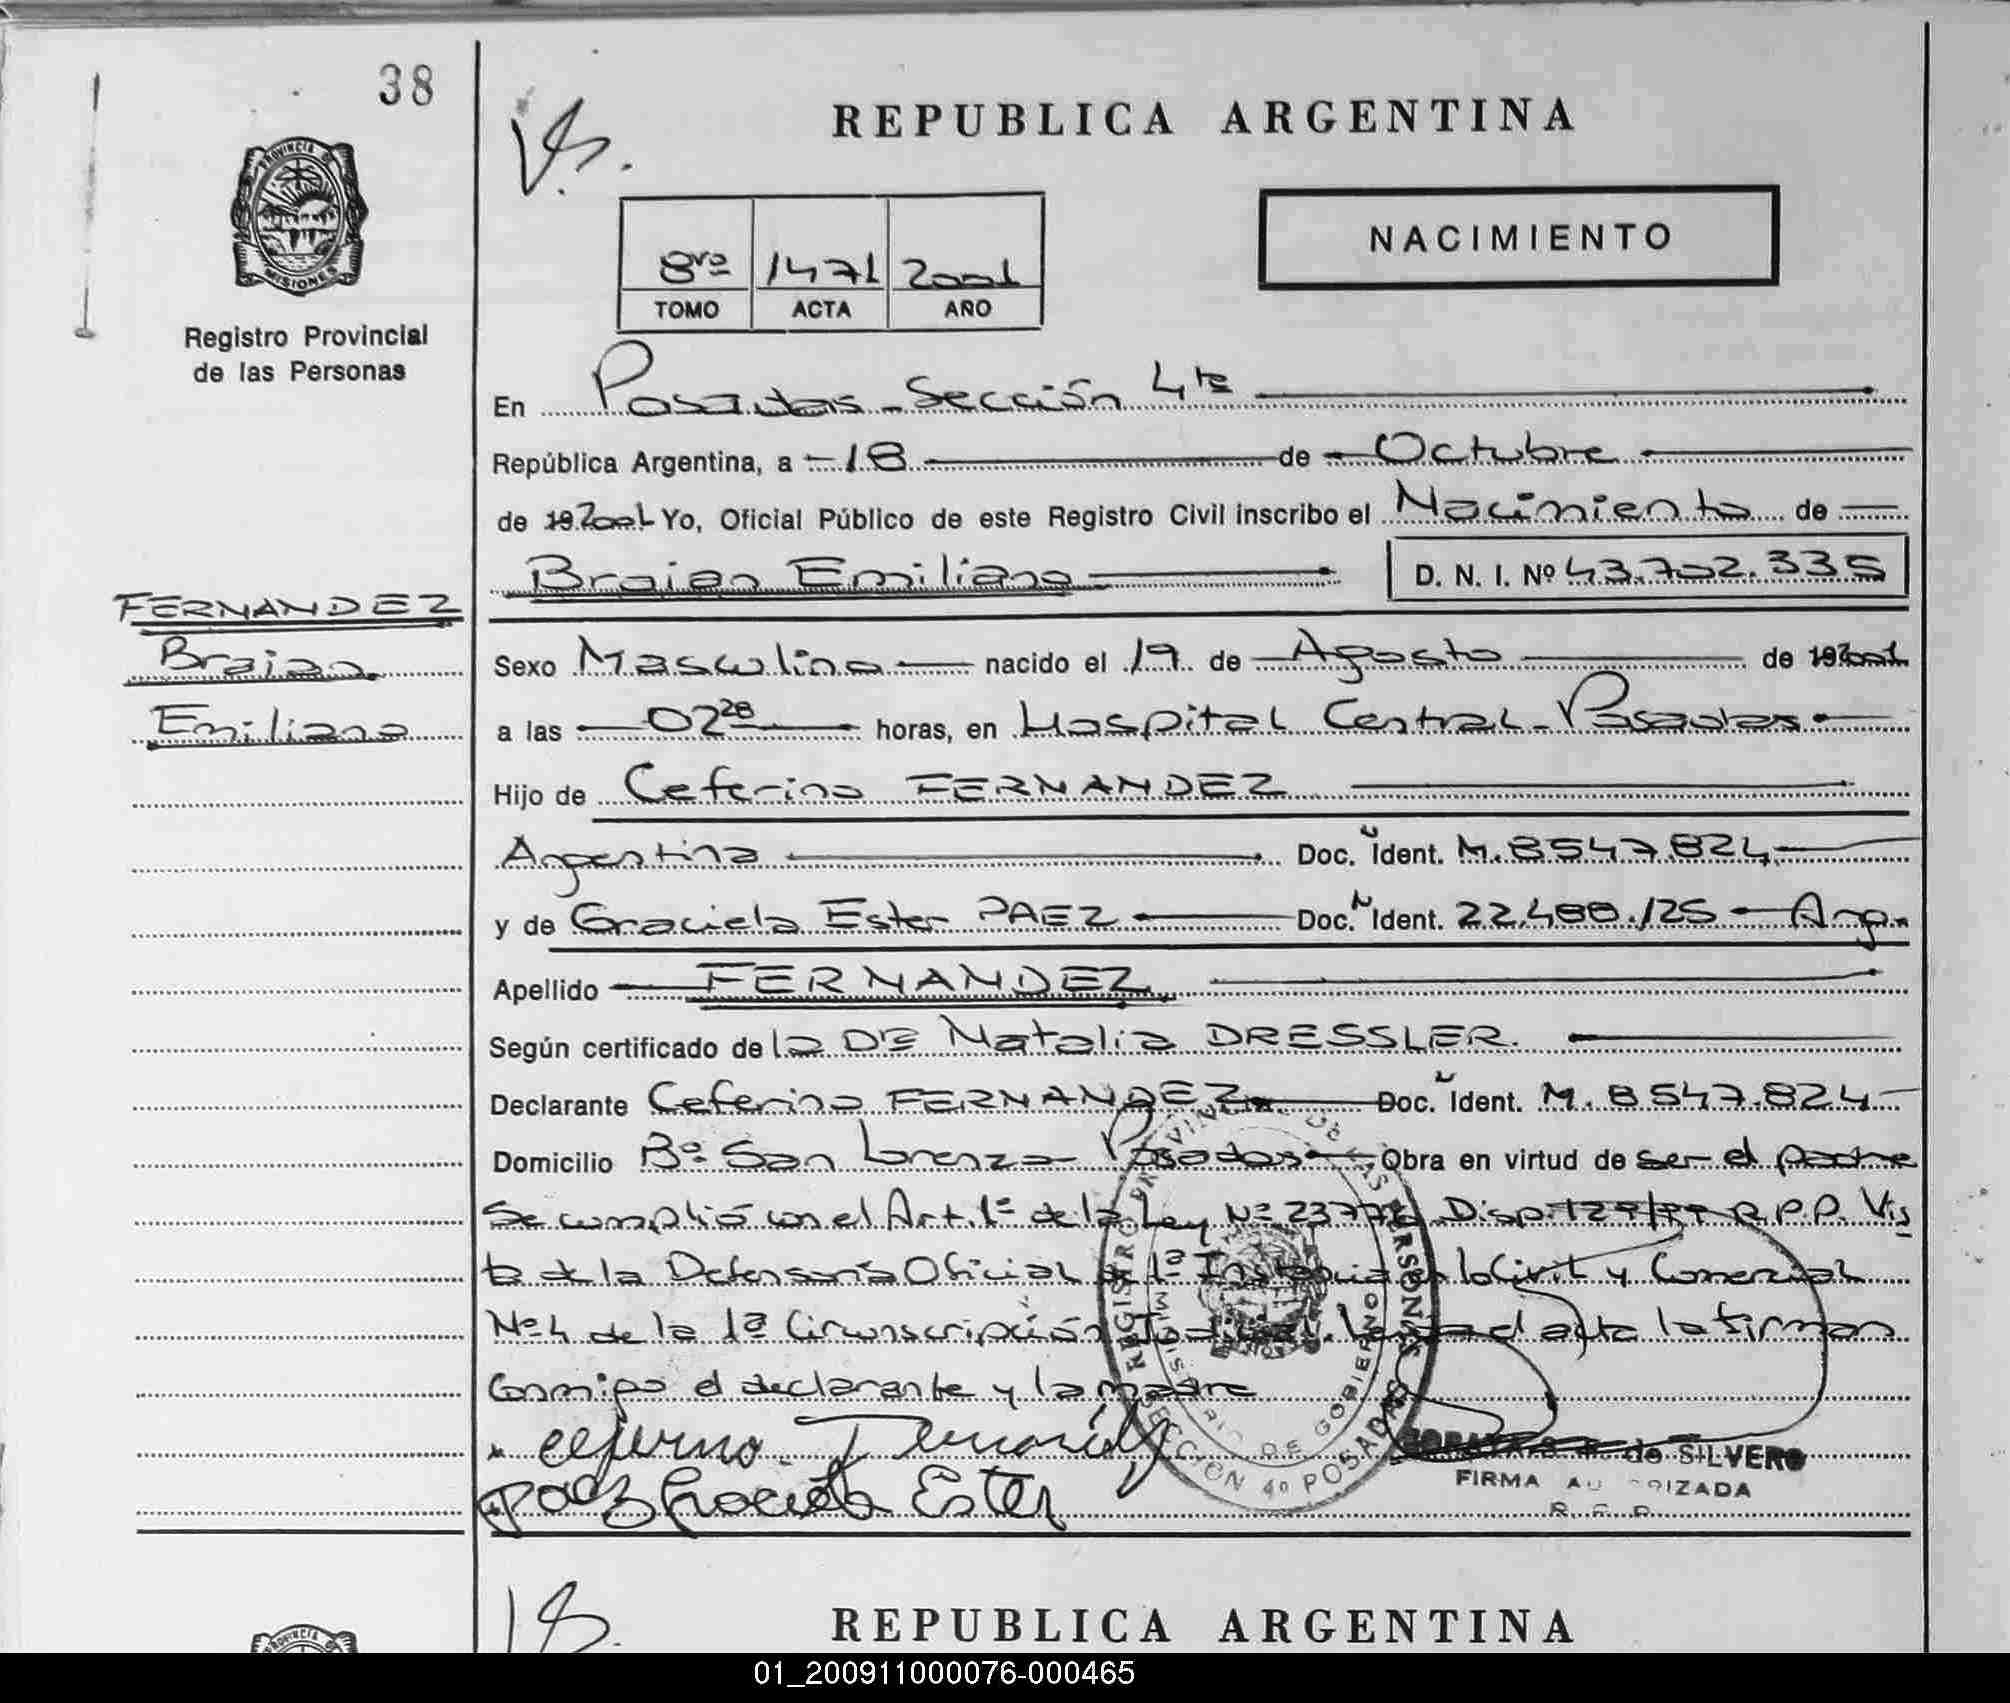 38
PROVINCIA DE
MISIONES
Registro Provincial
de las Personas
REPUBLICA ARGENTINA
NACIMIENTO
8vo 1471 2001
TOMO ACTA AÑO
En Posadas - Sección 4ta
República Argentina, a 18 de Octubre
de 19 2001 Yo, Oficial Público de este Registro Civil inscribo el Nacimiento de
Braian Emiliano D. N. I. Nº 43.702.335
FERNANDEZ
Braian
Emiliano
Sexo Masculino nacido el 19 de Agosto de 19 2001
a las 02 28 horas, en Hospital Central - Posadas
Hijo de Ceferino FERNANDEZ
Argentina Doc. Ident. M. 8547.824
y de Graciela Ester PAEZ Doc. Ident. 22.488.125 - Arg.
Apellido FERNANDEZ
Según certificado de la Dra Natalia DRESSLER.
Declarante Ceferino FERNANDEZ Doc. Ident. M. 8547.824
Domicilio Bº San Lorenzo - Posadas Obra en virtud de ser el padre
Se cumplió con el Art. 1º de la Ley Nº Disp. R.P.P. Vis
ta de la Defensoría Oficial de 1ª Instancia en lo Civil y Comercial
Nº 4 de la 1ª Circunscripción Judicial. Leída el acta la firman
Conmigo el declarante y la madre
ceferino Fernández
Paez Graciela Ester
REGISTRO PROVINCIAL DE LAS PERSONAS
MINISTERIO DE GOBIERNO
SECCION 4º POSADAS
de SILVERO
FIRMA AUTORIZADA
R. P. P.
REPUBLICA ARGENTINA
01_200911000076-000465